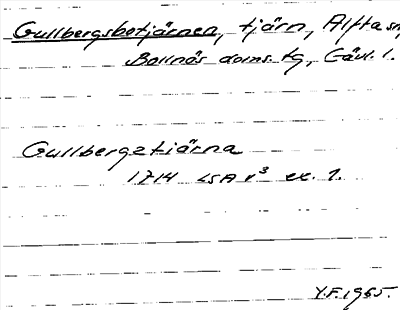 Gullbergsbotjärnen, tjärn, Alfta sn,
Bollnäs doms. tg, Gävl. l.
Gullbergetiärna
1714 LSA v³ ex. 1.
Y.F. 1965.